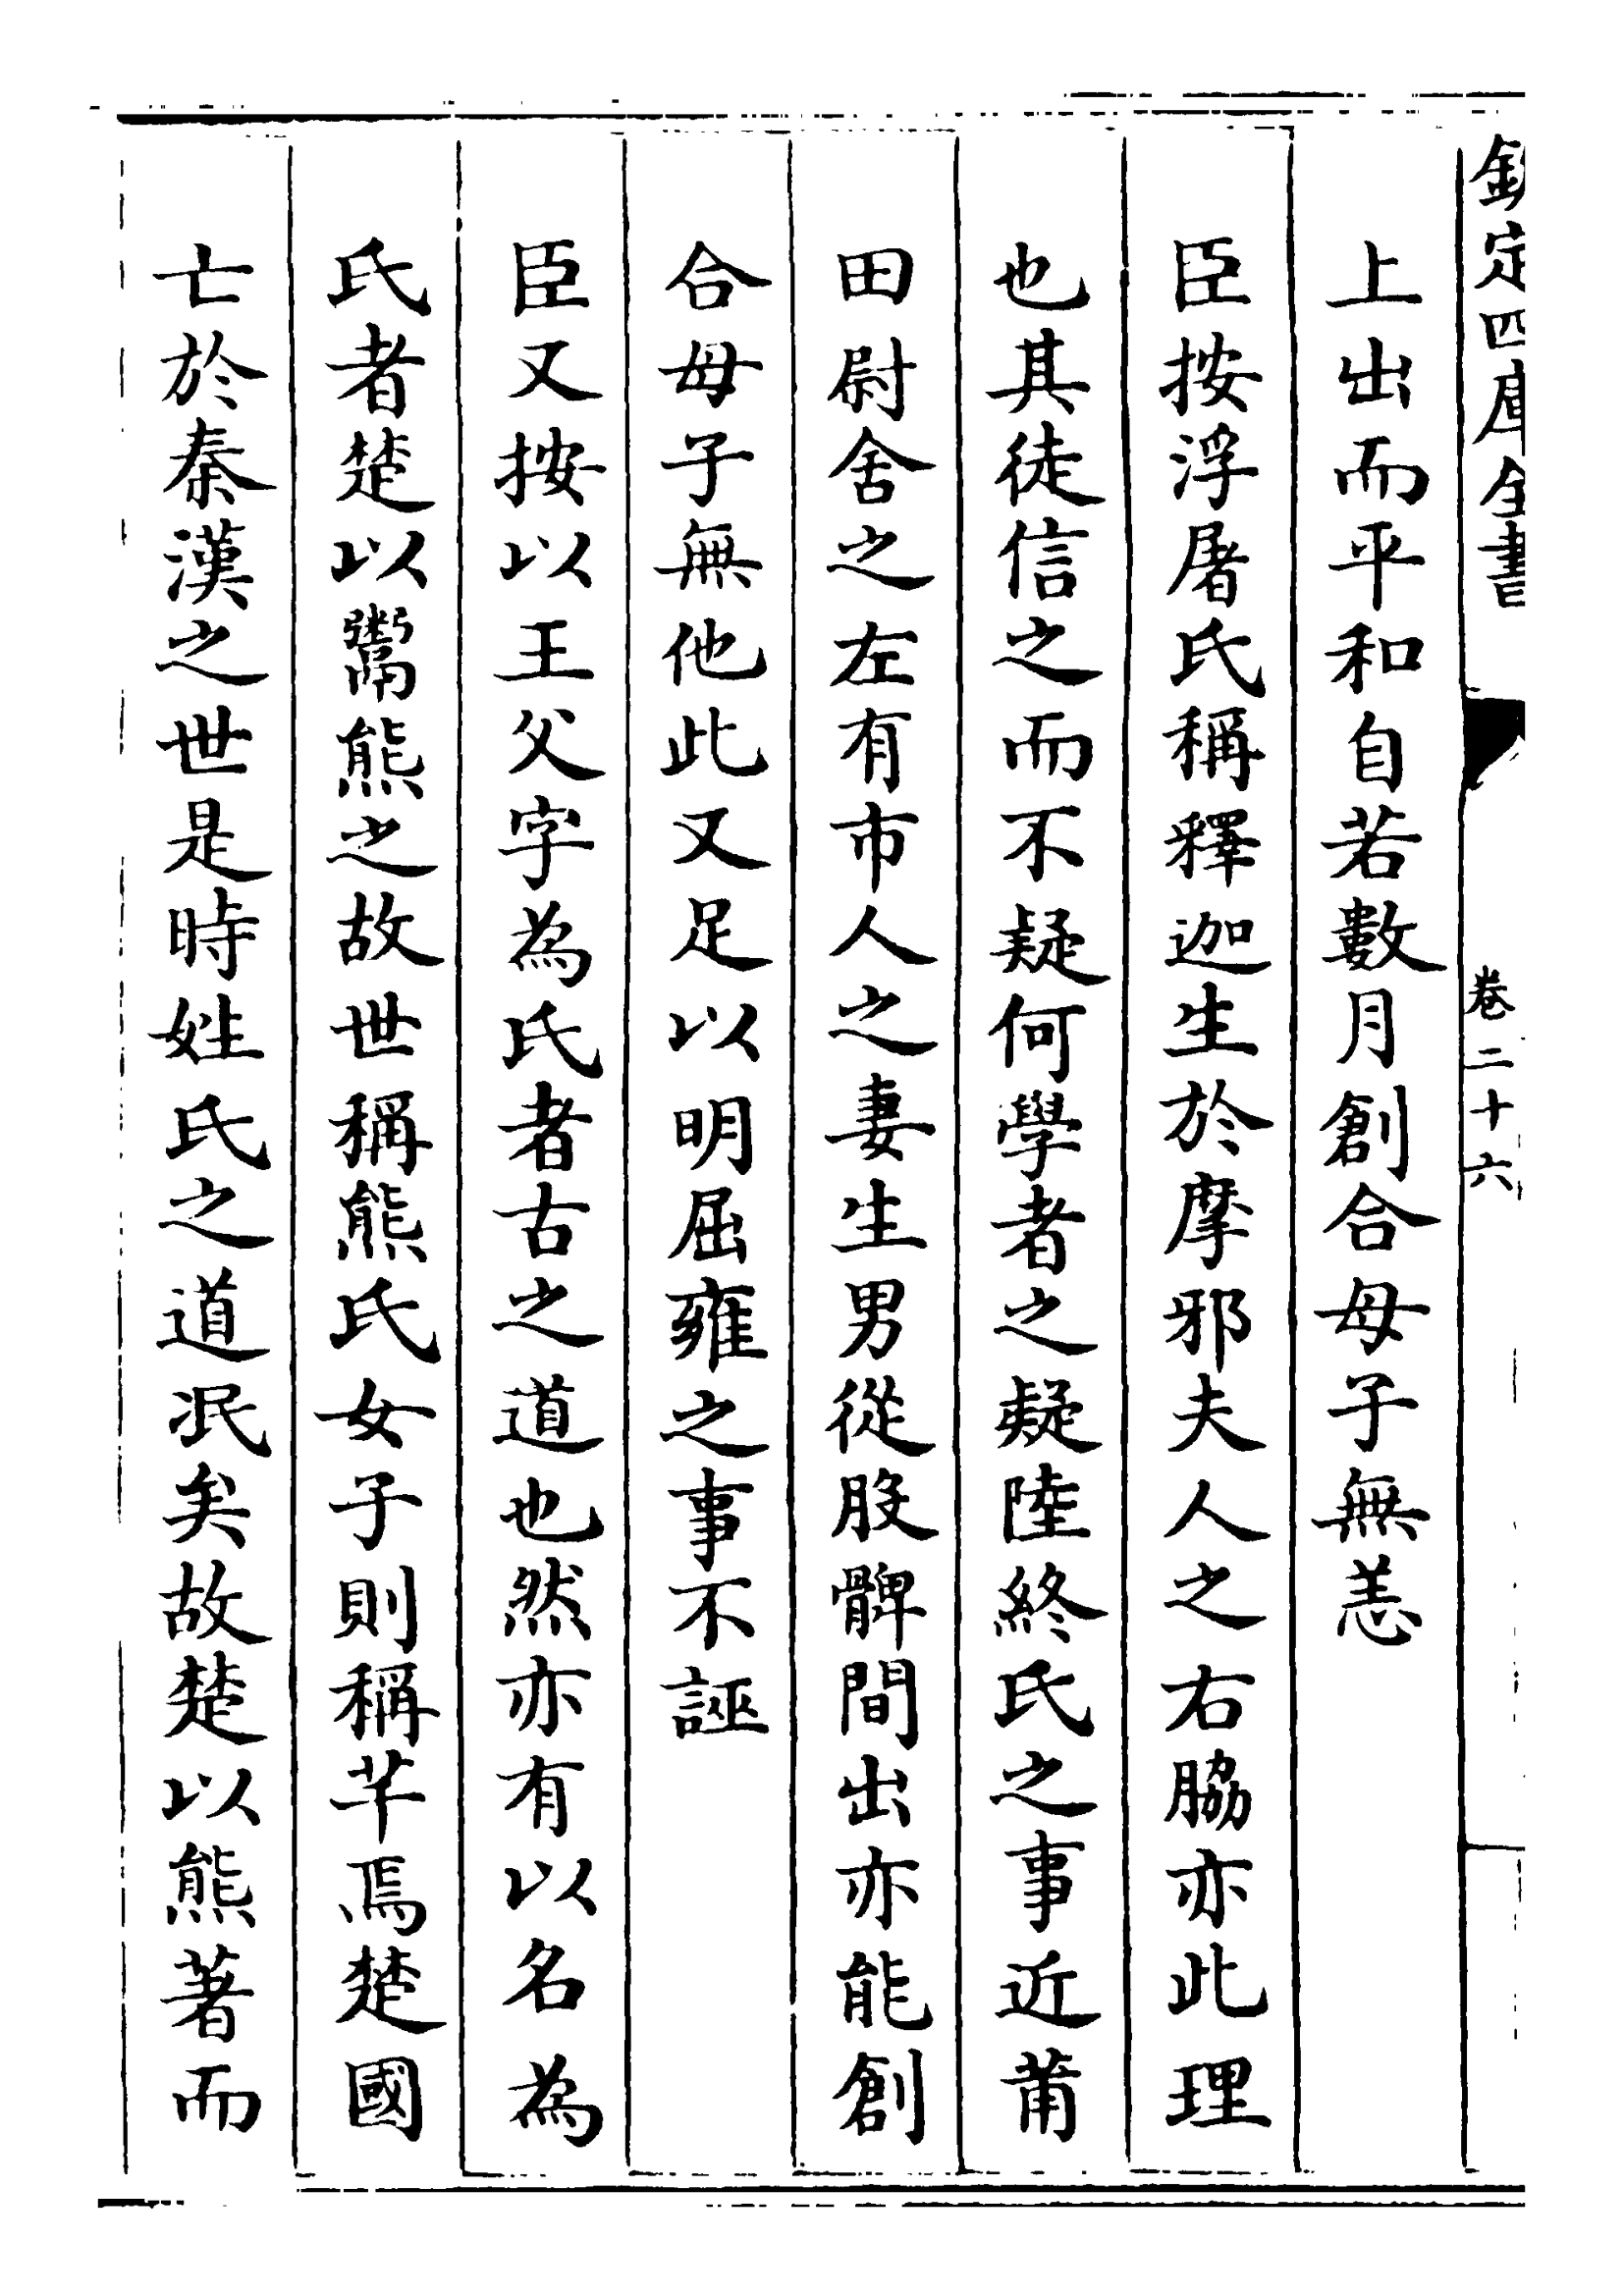 欽定四庫全書
卷二十六
上出而平和自若數月創合母子無恙
臣按浮屠氏稱釋迦生於摩邪夫人之右脇亦此理
也其徒信之而不疑何學者之疑陸終氏之事近莆
田尉舍之左有市人之妻生男從股髀間出亦能創
合母子無他此又足以明屈雍之事不誣
臣又按以王父字為氏者古之道也然亦有以名為
氏者楚以鬻熊之故世稱熊氏女子則稱芊焉楚國
亡於秦漢之世是時姓氏之道泯矣故楚以熊著而